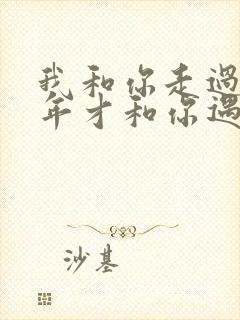 我和你走過
年才和你遇
沙基